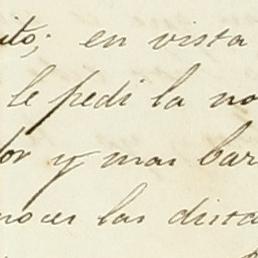 ito; en vista
le pedi la no
dor y mas bar
nocer las dista